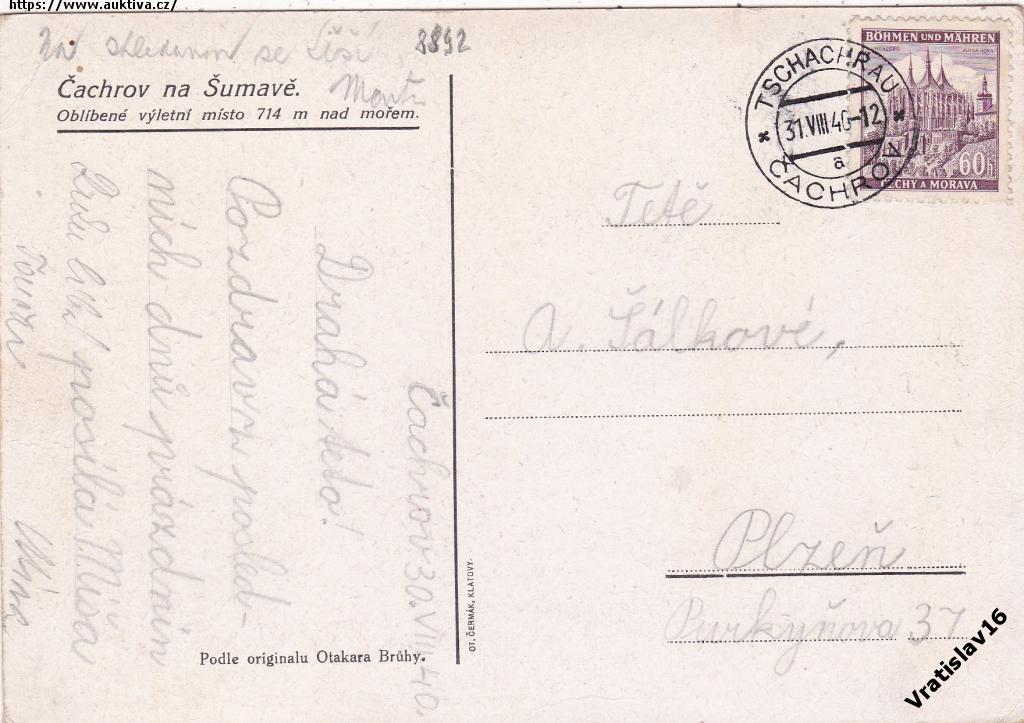 https://www.auktiva.cz/
se těší
8892
Čachrov na Šumavě.
Oblíbené výletní místo 714 m nad mořem.
Čachrov 30.VIII.40.
Drahá teto!
Pozdravy posled-
ních dnů prázdnin
líbá posílá Míša
Podle originalu Otakara Brůhy.
OT. ČERMÁK, KLATOVY.
TSCHACHRAU
31.VIII 40-12
a
ČACHROV
BÖHMEN UND MÄHREN
60h
ČECHY A MORAVA
Tetě
A. Šálkové,
Plzeň
Purkyňova 37
Vratislav16